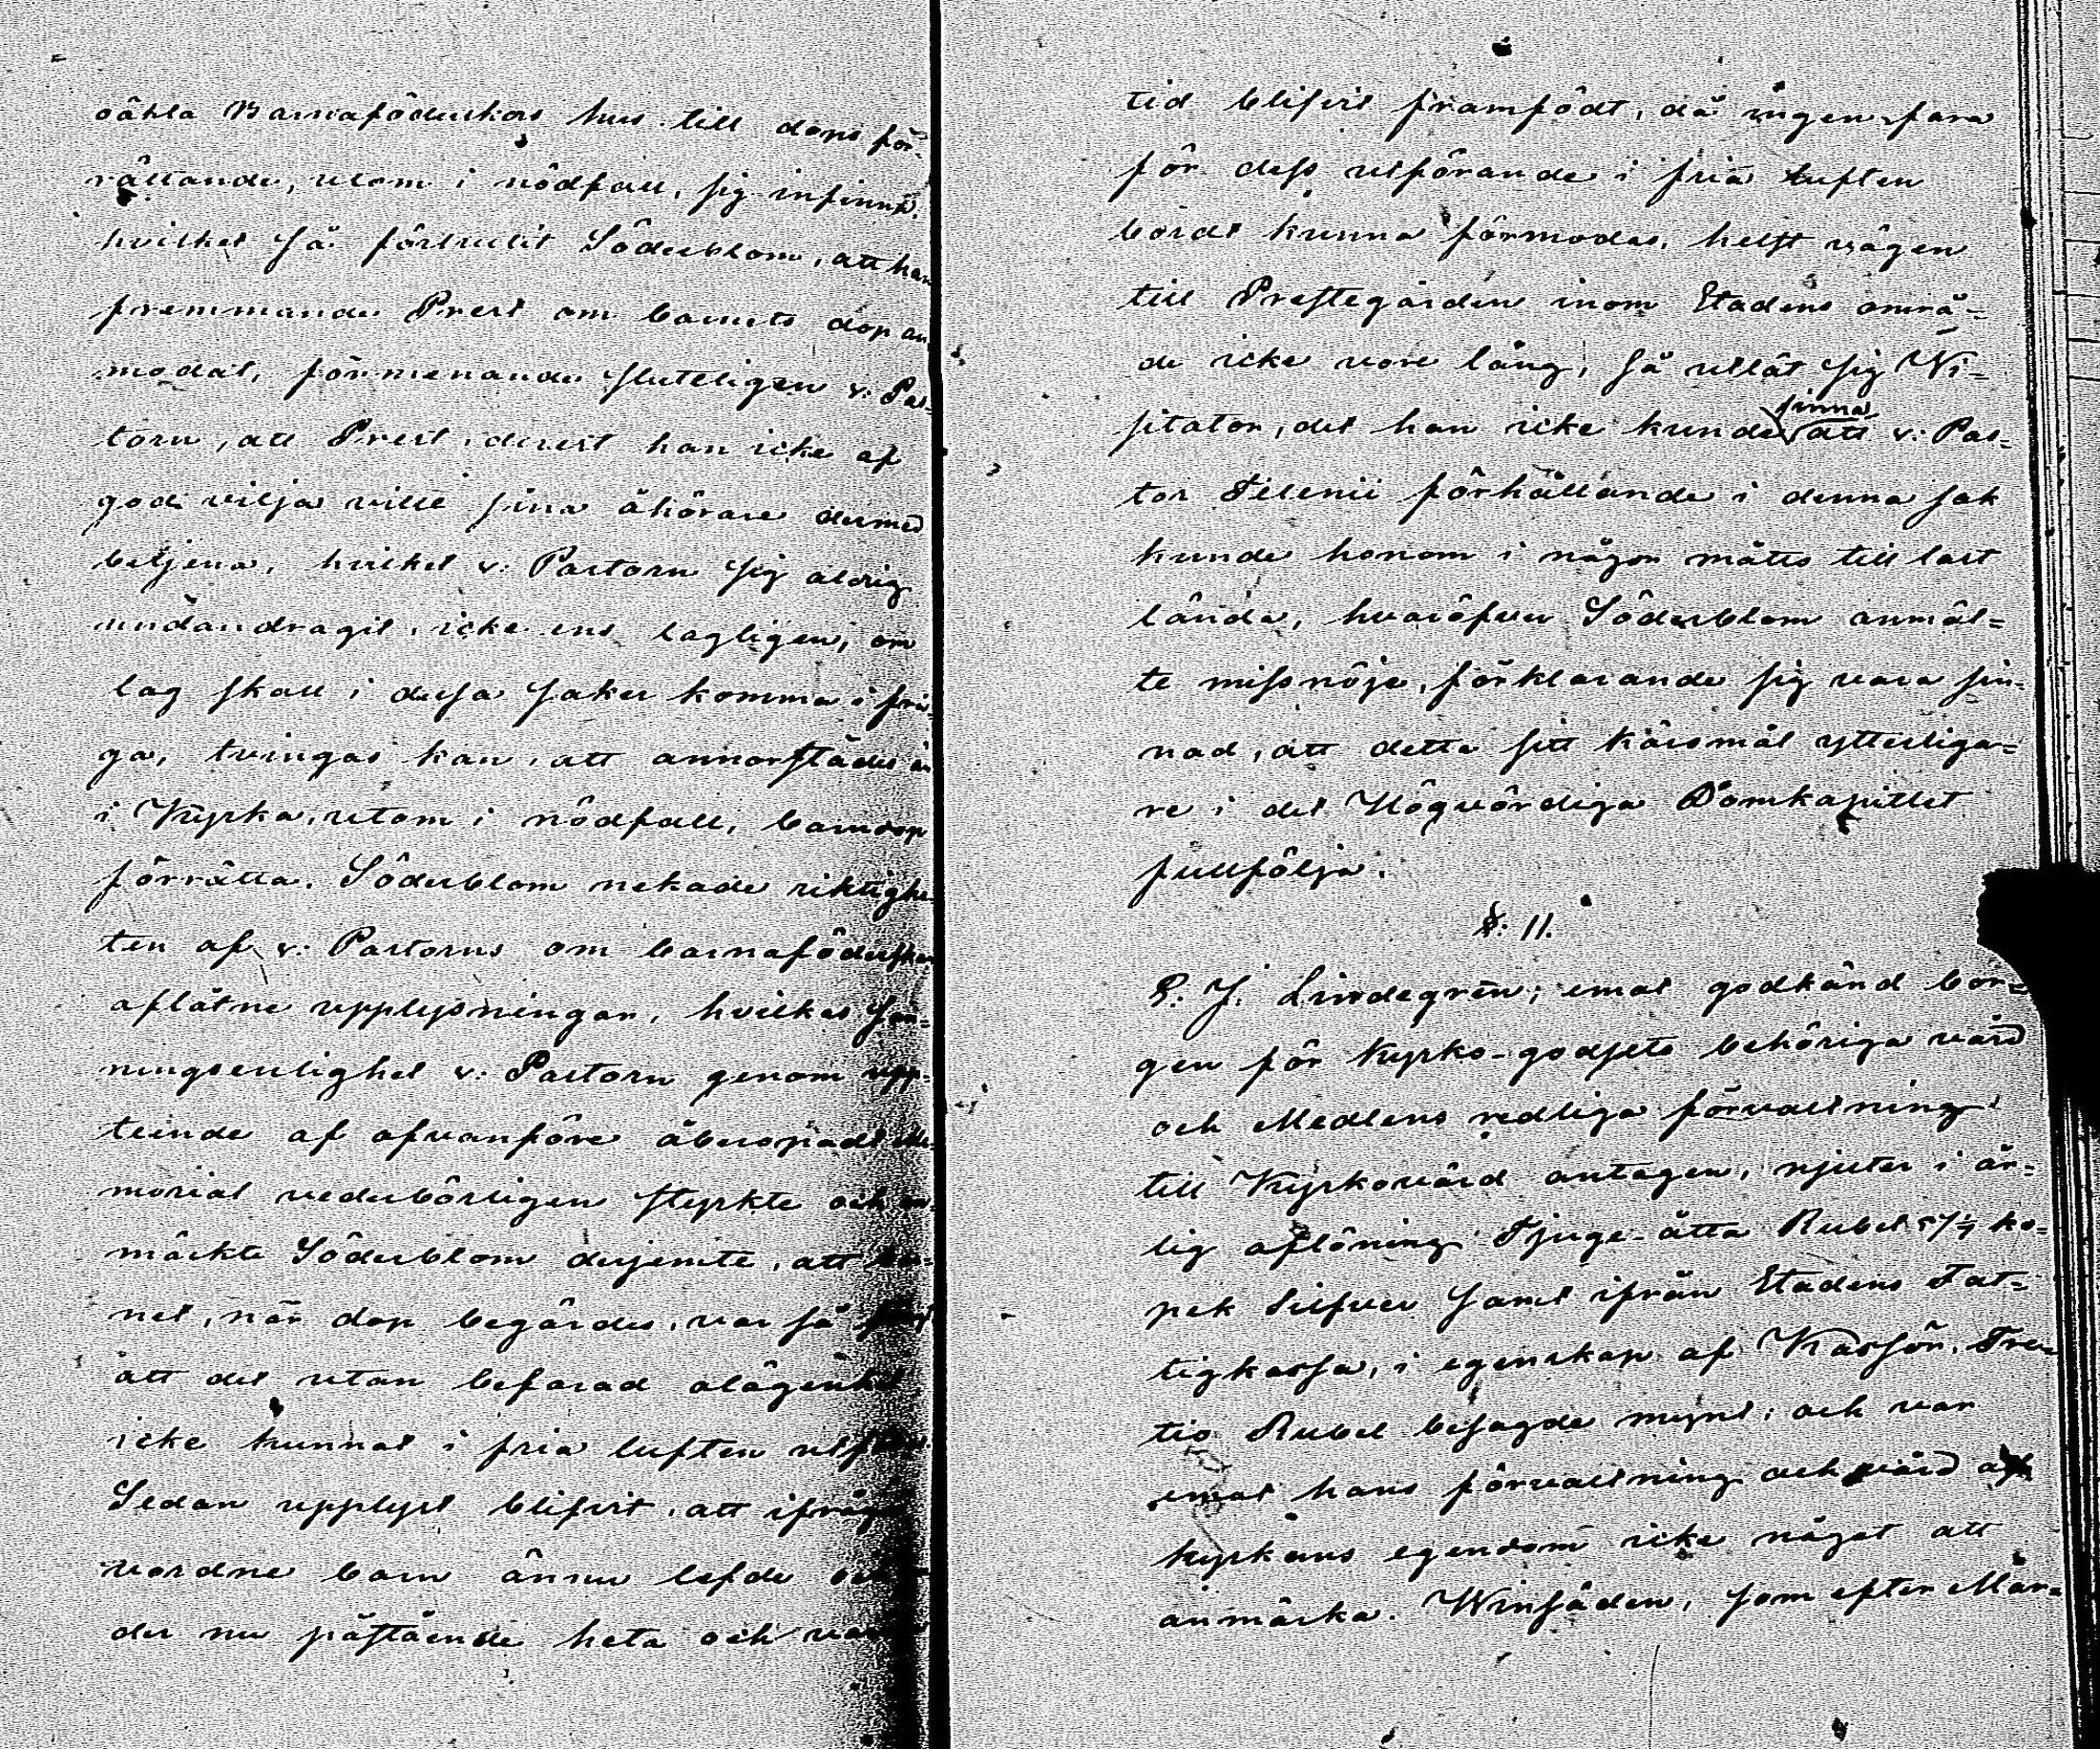 oäkta Barnaföderskors hus till dops för-
rättande, utom i nödfall, sig infinna,
hvilket så förtrutit Söderblom, att han
fremmande Prest om barnets dop an-
modat, förmenande sluteligen v: Pas-
torn, att Prest, derest han icke af
god vilja ville sina åhörare dermed
betjena, hvilket v: Pastorn sig aldrig
undandragit, icke ens lagligen, om
lag skall i dessa saker komma i frå-
ga, tvingas kan, att annorstädes än
i Kyrka, utom i nödfall, barndop
förrätta. Söderblom nekade riktighe-
ten af v: Pastorns om barnaföderskan
aflåtne upplysningar, hvilkas san-
ningsenlighet v: Pastorn genom upp-
teende af ofvanföre åberopadt Me-
morial vederbörligen styrkte och an-
märkte Söderblom derjemte, att bar-
net, när dop begärdes, var så
att det utan befarad olägenhet
icke kunnat i fria luften utföras.
Sedan upplyst blifvit, att ifråga-
vordne barn ännu lefde och
der nu påstående heta och
tid blifvit framfödt, då ingen fara
för dess utförande i fria luften
bordt kunna förmodas, helst vägen
till Prestegården inom Stadens områ-
de icke vore lång, så utlät sig Vi-
sitator, det han icke kunde finna att v: Pas-
tor Tilenii förhållande i denna sak
kunde honom i någor måtto till last
lända, hvaröfver Söderblom anmäl-
te missnöje, förklarande sig vara sin-
nad, att detta sitt käromål ytterliga-
re i det Högvördiga Domkapitlet
fullfölja.
§: 11.
P. J. Lindegrén; emot godkänd bor-
gen för Kyrko-godsets behöriga vård
och Medlens redliga förvaltning
till Kyrkovärd antagen, njuter i år-
lig aflöning Tjugo-åtta Rubel 57 1/7 ko-
pek Silfver samt ifrån Stadens Fat-
tigkassa, i egenskap af Kassör, Tret-
tio Rubel besagde mynt; och var
emot hans förvaltning och vård af
kyrkans egendom icke något att
anmärka. Winsäden, som efter Mar-